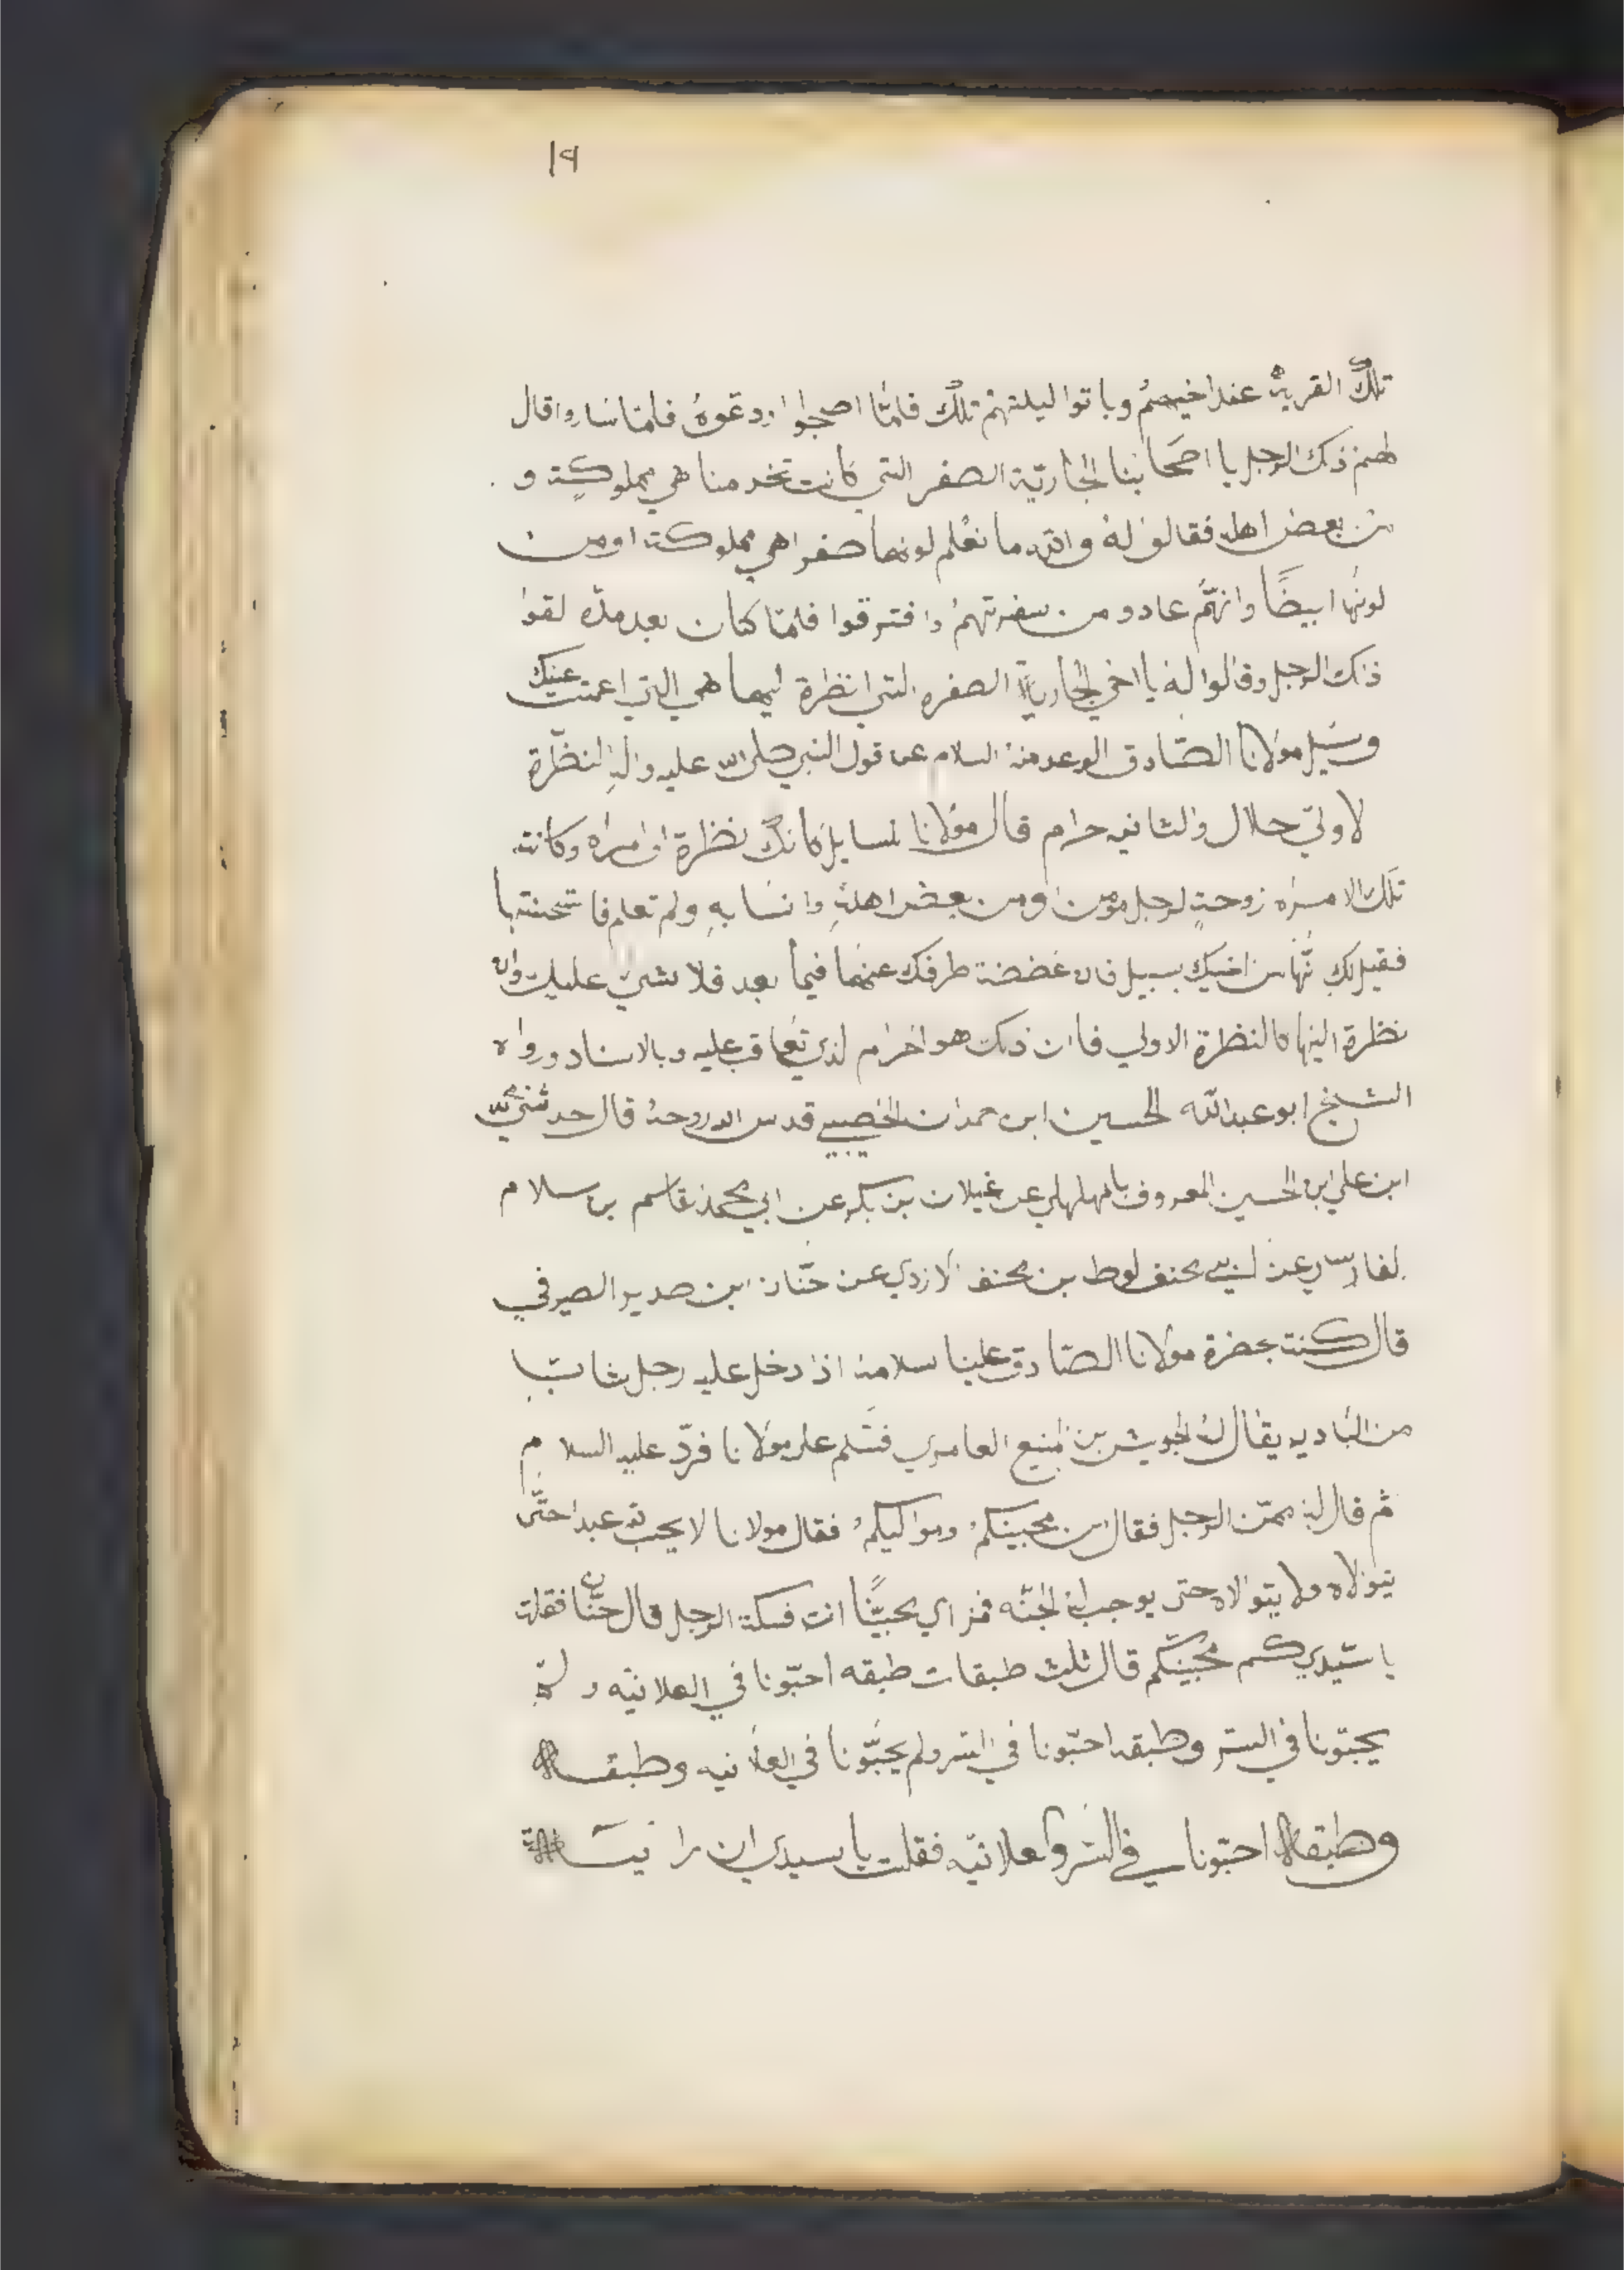 ١٩
تلك القرية عند اخيهم وباتوا ليلتهم تلك فلمّا اصبحوا ودعوهُ فلمّا ساروا قال
لهم ذلك الرجل يا اصحابنا الجاريّة الصفر التي كانت تخدمنا هي مملوكة و
من بعض اهله فقالو لهُ والله ما نعلم لونها صفرا هي مملوكة او من
لونها ابيضًا وانهّم عادو من سفرتهم وافترقوا فلمّا كان بعد مدّه لقوا
ذلك الرجل وقالوا له يا اخي الجارية الصفره التي انظرة اليها هي التي اعمت عينك
وسُيل مولانا الصّادق الوعد منهُ السلام عن قول النبي صلى الله عليه واله النظّرة
لاولي حلال والثانيه حرام قال مولانا لسايل كانك نظرة الى امراه وكانت
تلك الامراه زوجتٍ لرجل مومن او من بعض اهله وانسابهِ ولم تعلم فا ستحسنتها
فقيل لك انّها من اخيك بسبيل فان غضضة طرفك عنها فيما بعد فلا شي عليك وان
نظرة اليها كالنظرة الاولي فاان ذلك هو احرام لذي تعاقب عليه وبالاسناد ورواه
الشيخ ابو عبدالله الحسين ابن حمدان الخصيبي قدس الله روحهُ قال حدثني
ابن علي ابن الحسين المعروف بالهلهلي عن غيلان بن بكر عن ابي محمد قاسم بن سلام
لفارسي عن ابي محنف لوط بن محنف لازدي عن حنّان ابن صدير الصيرفي
قال كنت بحضرة مولانا الصّادق علينا سلامه اذ دخل عليه رجل شابّا
من البّاديه يقال لهُ الجويش بن منيع العامري فسّلم على مولانا فردّ عليه السلام
ثم قال له ممّن الرجل فقال من محبينكم ومواليكم فقال مولانا لا يحب لله عبدا حتّى
يتولاه ولا يتولاه حتى يوجب له الجنّه فمن اي محبيّنًا انت فسكة الرجل قال حنّان فقلت
يا سّيدي كم محبّينكم قال ثلث طبقات طبقه احبّونا في العلانيّه ولم
يحبّونا في السّر وطبقه احبّونا في السّر ولم يحبّونا في العلانيه وطبقه
وطبقه احبّونا في السّر والعلانيّه فقلت يا سيدي ان رانيت